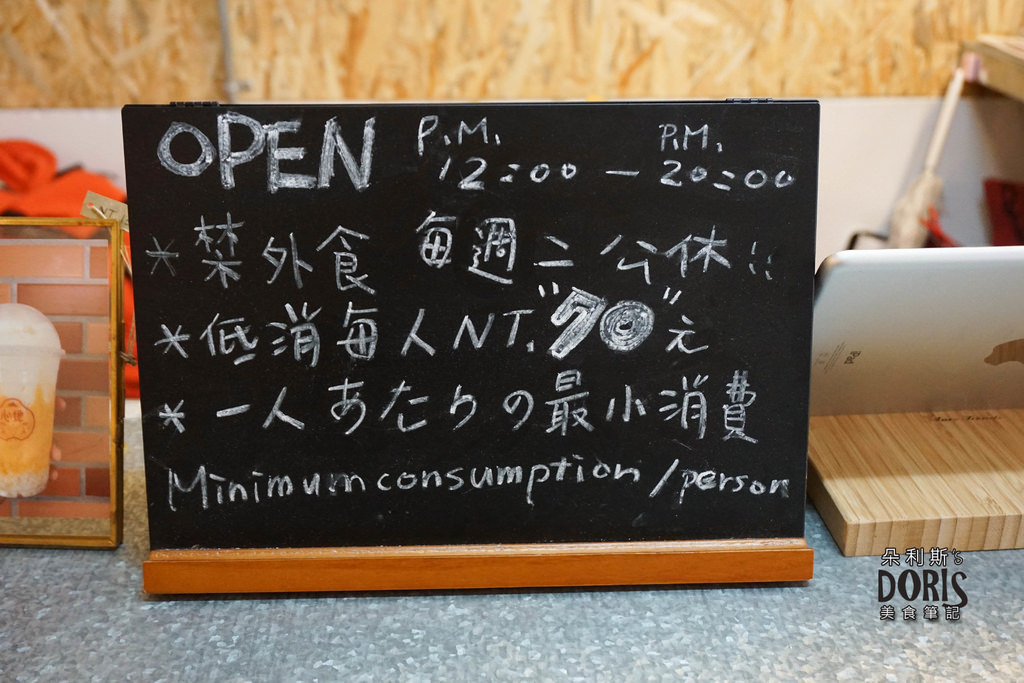 OPEN P.M. 12:00 — P.M. 20:00
* 禁外食 每週二公休!!
* 低消每人NT."70"元
* 一人あたりの最小消費
Minimum consumption /person
朵利斯's
DORIS
美食筆記